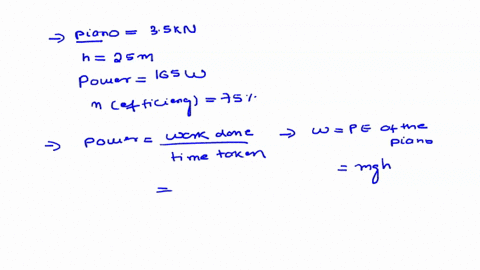 → piano = 3.5kN
h = 25m
Power = 165W
n (efficiency) = 75%
→ Power = work done / time taken → W = PE of the piano
= = mgh